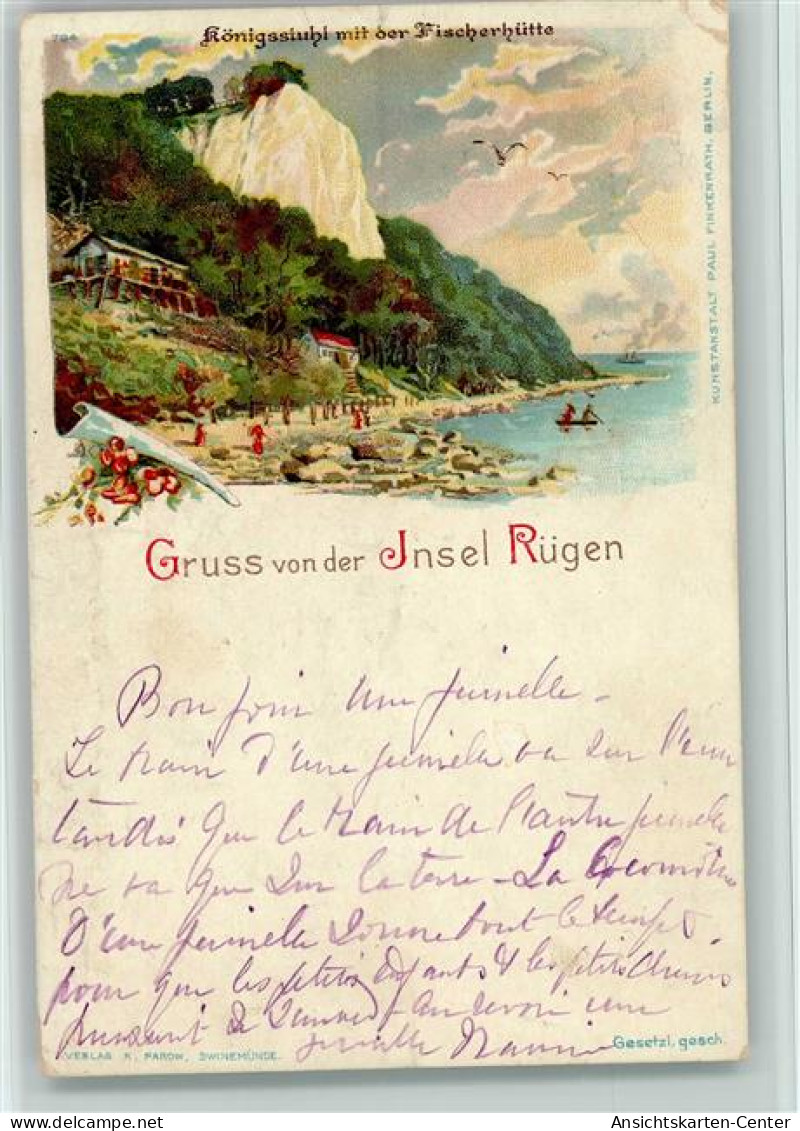 794
Königsstuhl mit der Fischerhütte
KUNSTANSTALT PAUL FINKENRATH, BERLIN.
Gruss von der Insel Rügen
Bon jour une jumelle –
Le train d'une jumelle va sur l'eau
tandis que le train de l'autre jumelle
ne va que sur la terre – La locomotive
d'une jumelle sonne tout le temps
pour que les petits enfants & les petits chiens
puissent se sauver – au revoir une
jumelle
Gesetzl. gesch.
VERLAG K. PAROW, SWINEMÜNDE.
Ansichtskarten-Center